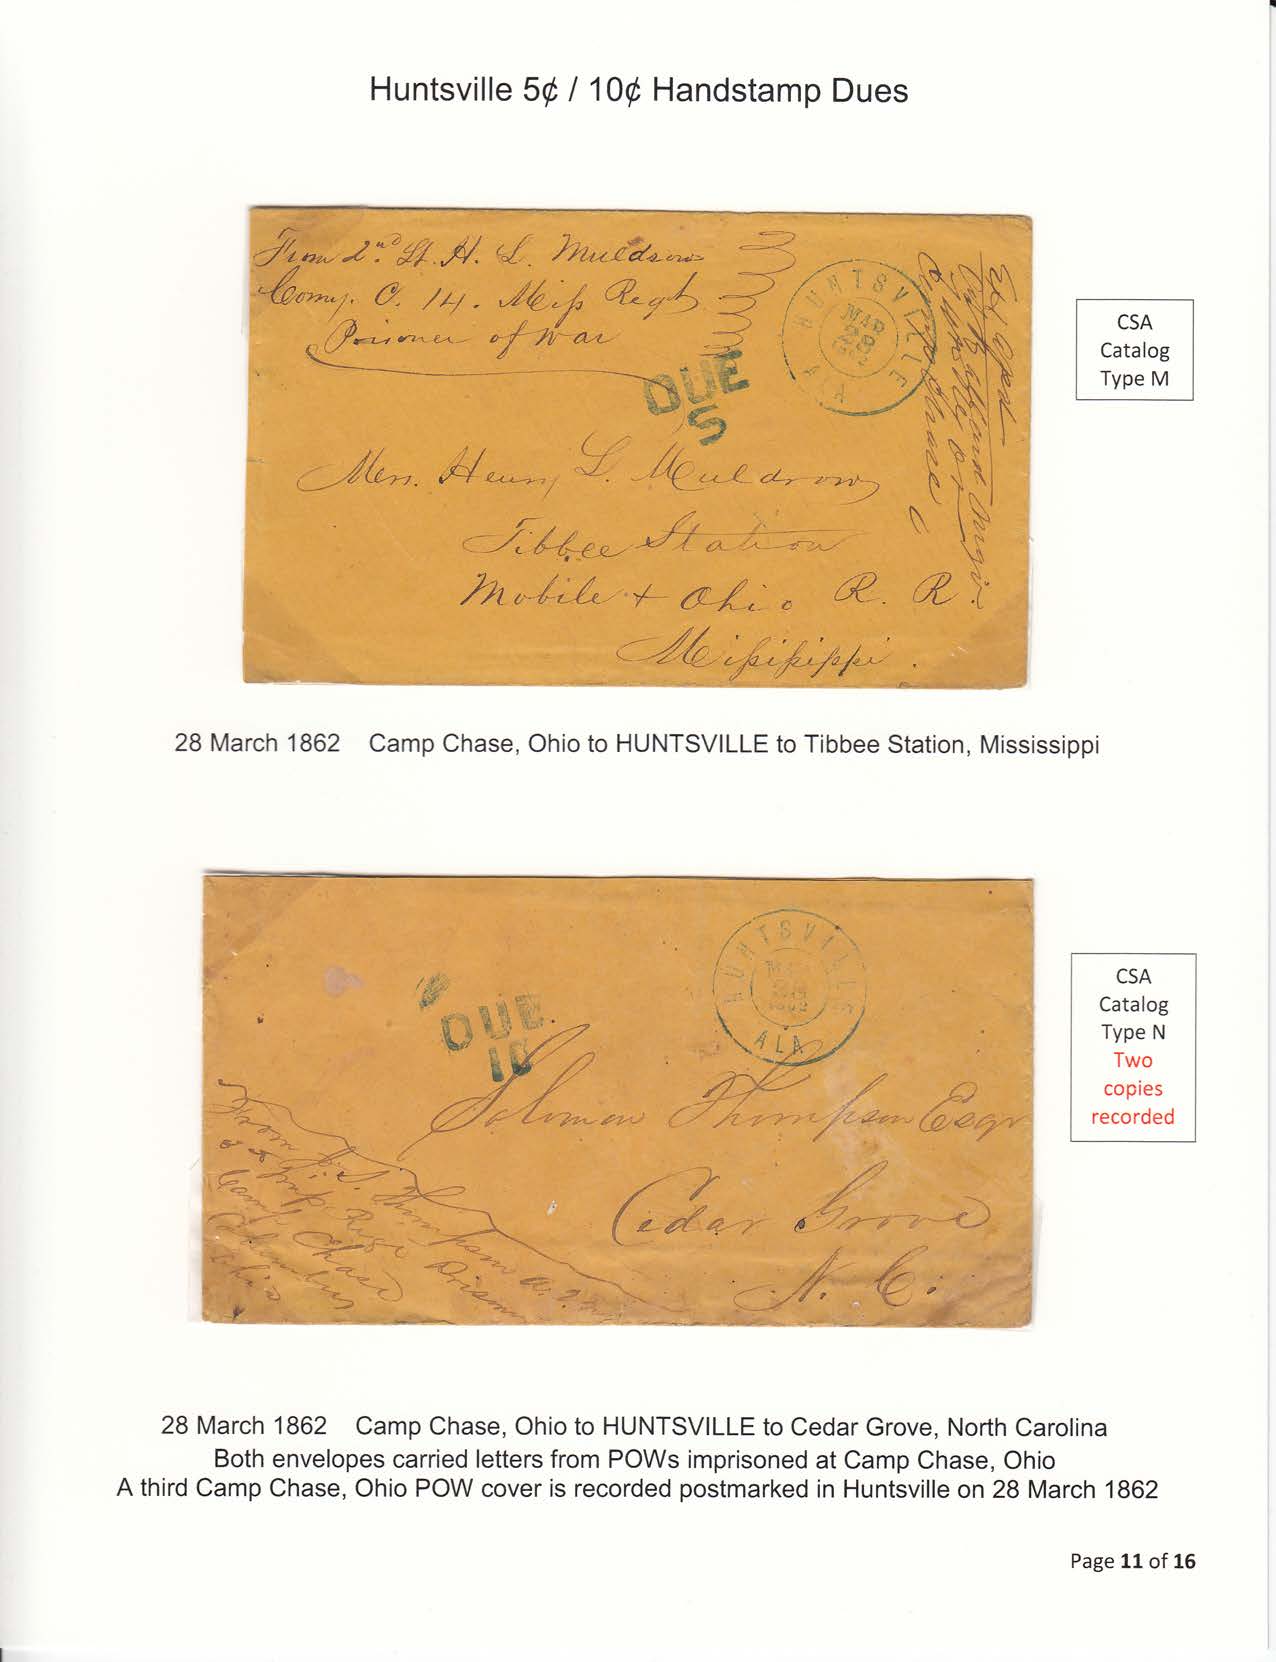 Huntsville 5¢ / 10¢ Handstamp Dues
From 2nd Lt. H. L. Muldrow
Comy. C. 14. Miss Regt
Prisoner of War
HUNTSVILLE
ALA
MAR
28
1862
DUE
5
Mrs. Henry L. Muldrow
Tibbee Station
Mobile + Ohio R. R.
Mississippi.
CSA
Catalog
Type M
28 March 1862 Camp Chase, Ohio to HUNTSVILLE to Tibbee Station, Mississippi
HUNTSVILLE
ALA
DUE
10
Solomon Thompson Esqr
Cedar Grove
N. C.
From
Thompson
Camp Chase
Columbus
Ohio
CSA
Catalog
Type N
Two
copies
recorded
28 March 1862 Camp Chase, Ohio to HUNTSVILLE to Cedar Grove, North Carolina
Both envelopes carried letters from POWs imprisoned at Camp Chase, Ohio
A third Camp Chase, Ohio POW cover is recorded postmarked in Huntsville on 28 March 1862
Page 11 of 16